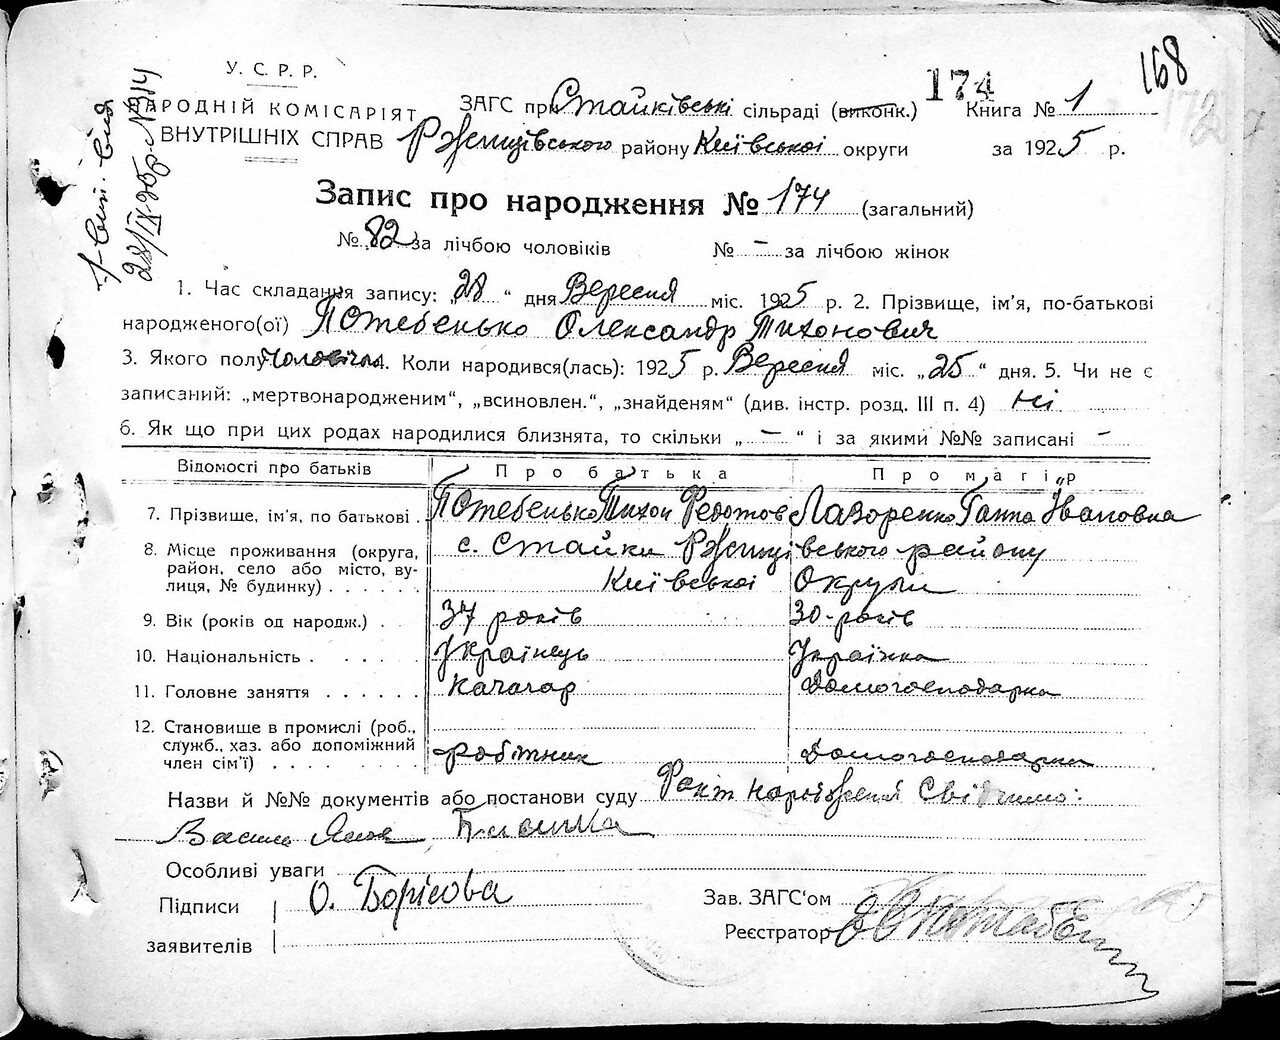 168
174
У. С. Р. Р.
НАРОДНІЙ КОМІСАРІЯТ
ВНУТРІШНІХ СПРАВ
ЗАГС при Стайківські сільраді (виконк.) Книга № 1
Ржищівського району Київської округи за 1925 р.
Запис про народження № 174 (загальний)
№ 82 за лічбою чоловіків № – за лічбою жінок
1. Час складання запису: „28“ дня Вересня міс. 1925 р. 2. Прізвище, ім'я, по-батькові
народженого(ої) Потебенько Олександр Тихонович
3. Якого полу Чоловічої 4. Коли народився(лась): 1925 р. Вересня міс. „25“ дня. 5. Чи не є
записаний: „мертвонародженим“, „всиновлен.“, „знайденям“ (див. інстр. розд. III п. 4) Ні
6. Як що при цих родах народилися близнята, то скільки „–“ і за якими №№ записані –
Відомості про батьків Про батька Про матір
7. Прізвище, ім'я, по батькові . Потебенько Тихон Федотов Лазоренко Ганна Івановна
8. Місце проживання (округа, с. Стайки Ржищівського району
район, село або місто, ву-
лиця, № будинку) . . . . . . Київської Округи
9. Вік (років од народж.) . . 37 років 30 років
10. Національність . . . . . Українець Українка
11. Головне заняття . . . . . . Качагар Домогосподарка
12. Становище в промислі (роб.,
служб., хаз. або допоміжний
член сім'ї) . . . . . . . робітник Домогосподарка
Назви й №№ документів або постанови суду Факт народження Свідчимо:
Особливі уваги
Підписи О. Борісова
заявителів
Зав. ЗАГС'ом
Реєстратор